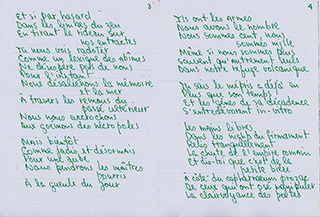 3
Et si par hasard
Dans les limbes du jeu
En tirant le rideau sur
vos entractes
Tu nous vois radoter
Comme un lexique des abîmes
Ne désespère pas de nous
Pour l'instant
Nous désaltérons la mémoire
et la mer
À travers les remous du
désir ultérieur
Nous nous accrochons
Aux goémons des métropoles
Mais bientôt
Comme jadis et désormais
Pour une aube
Nous pendrons les maîtres
pourris
À la gueule du jour
4
Ils ont les armes
Nous avons le nombre
Nous sommes cent, nous
sommes mille
Même si nous sommes seuls
sauront qu'autrement
Dans notre refuge volcanique
Tu sais le mépris a déjà su
Plus que son temps
Et les gènes de sa décadence
S'entredévorent in-vitro
Les mains libres
Dans les nichos du firmament
Hélas tranquillement
La chute de l'empire romain
Et dis-toi que c'est de la
petite bière
À côté du capharnaüm
De ceux qui ont pas
La clairvoyance des poètes